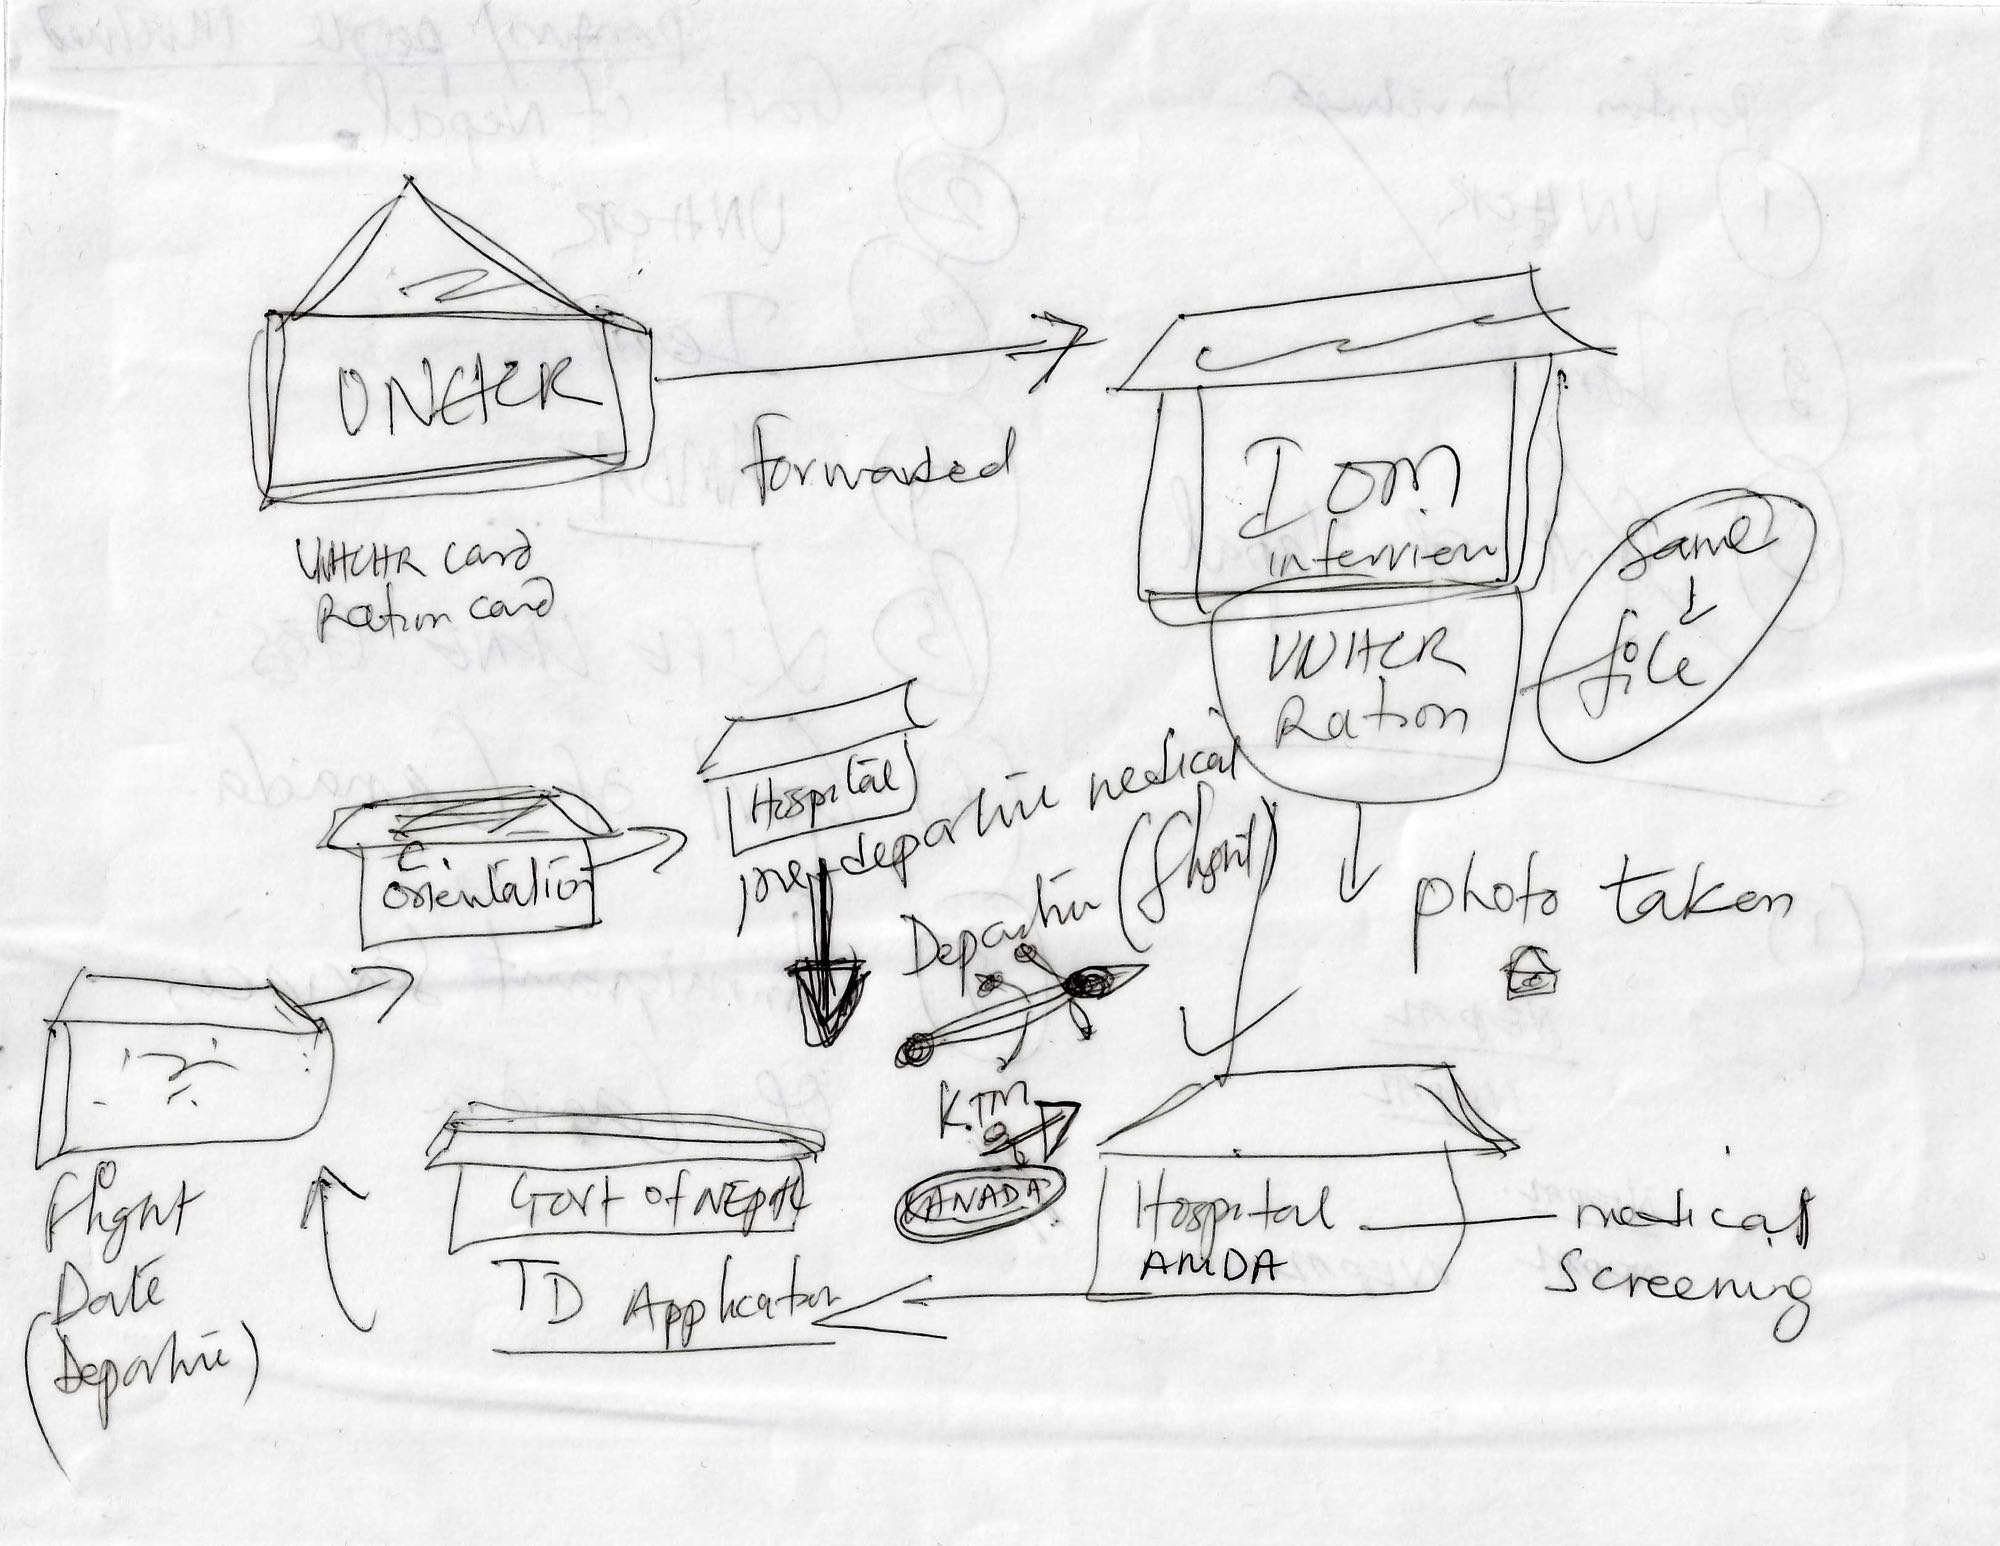 UNHCR
forwarded
IOM
interview
UNHCHR card
Ration card
same
file
UNHCR
Ration
Hospital
pre-departure medical
C.
orientation
Departure (flight)
photo taken
K.TM
CANADA
Govt of NEpal
TD Application
Hospital
AMDA
medical
screening
flight
Date
(Departure)